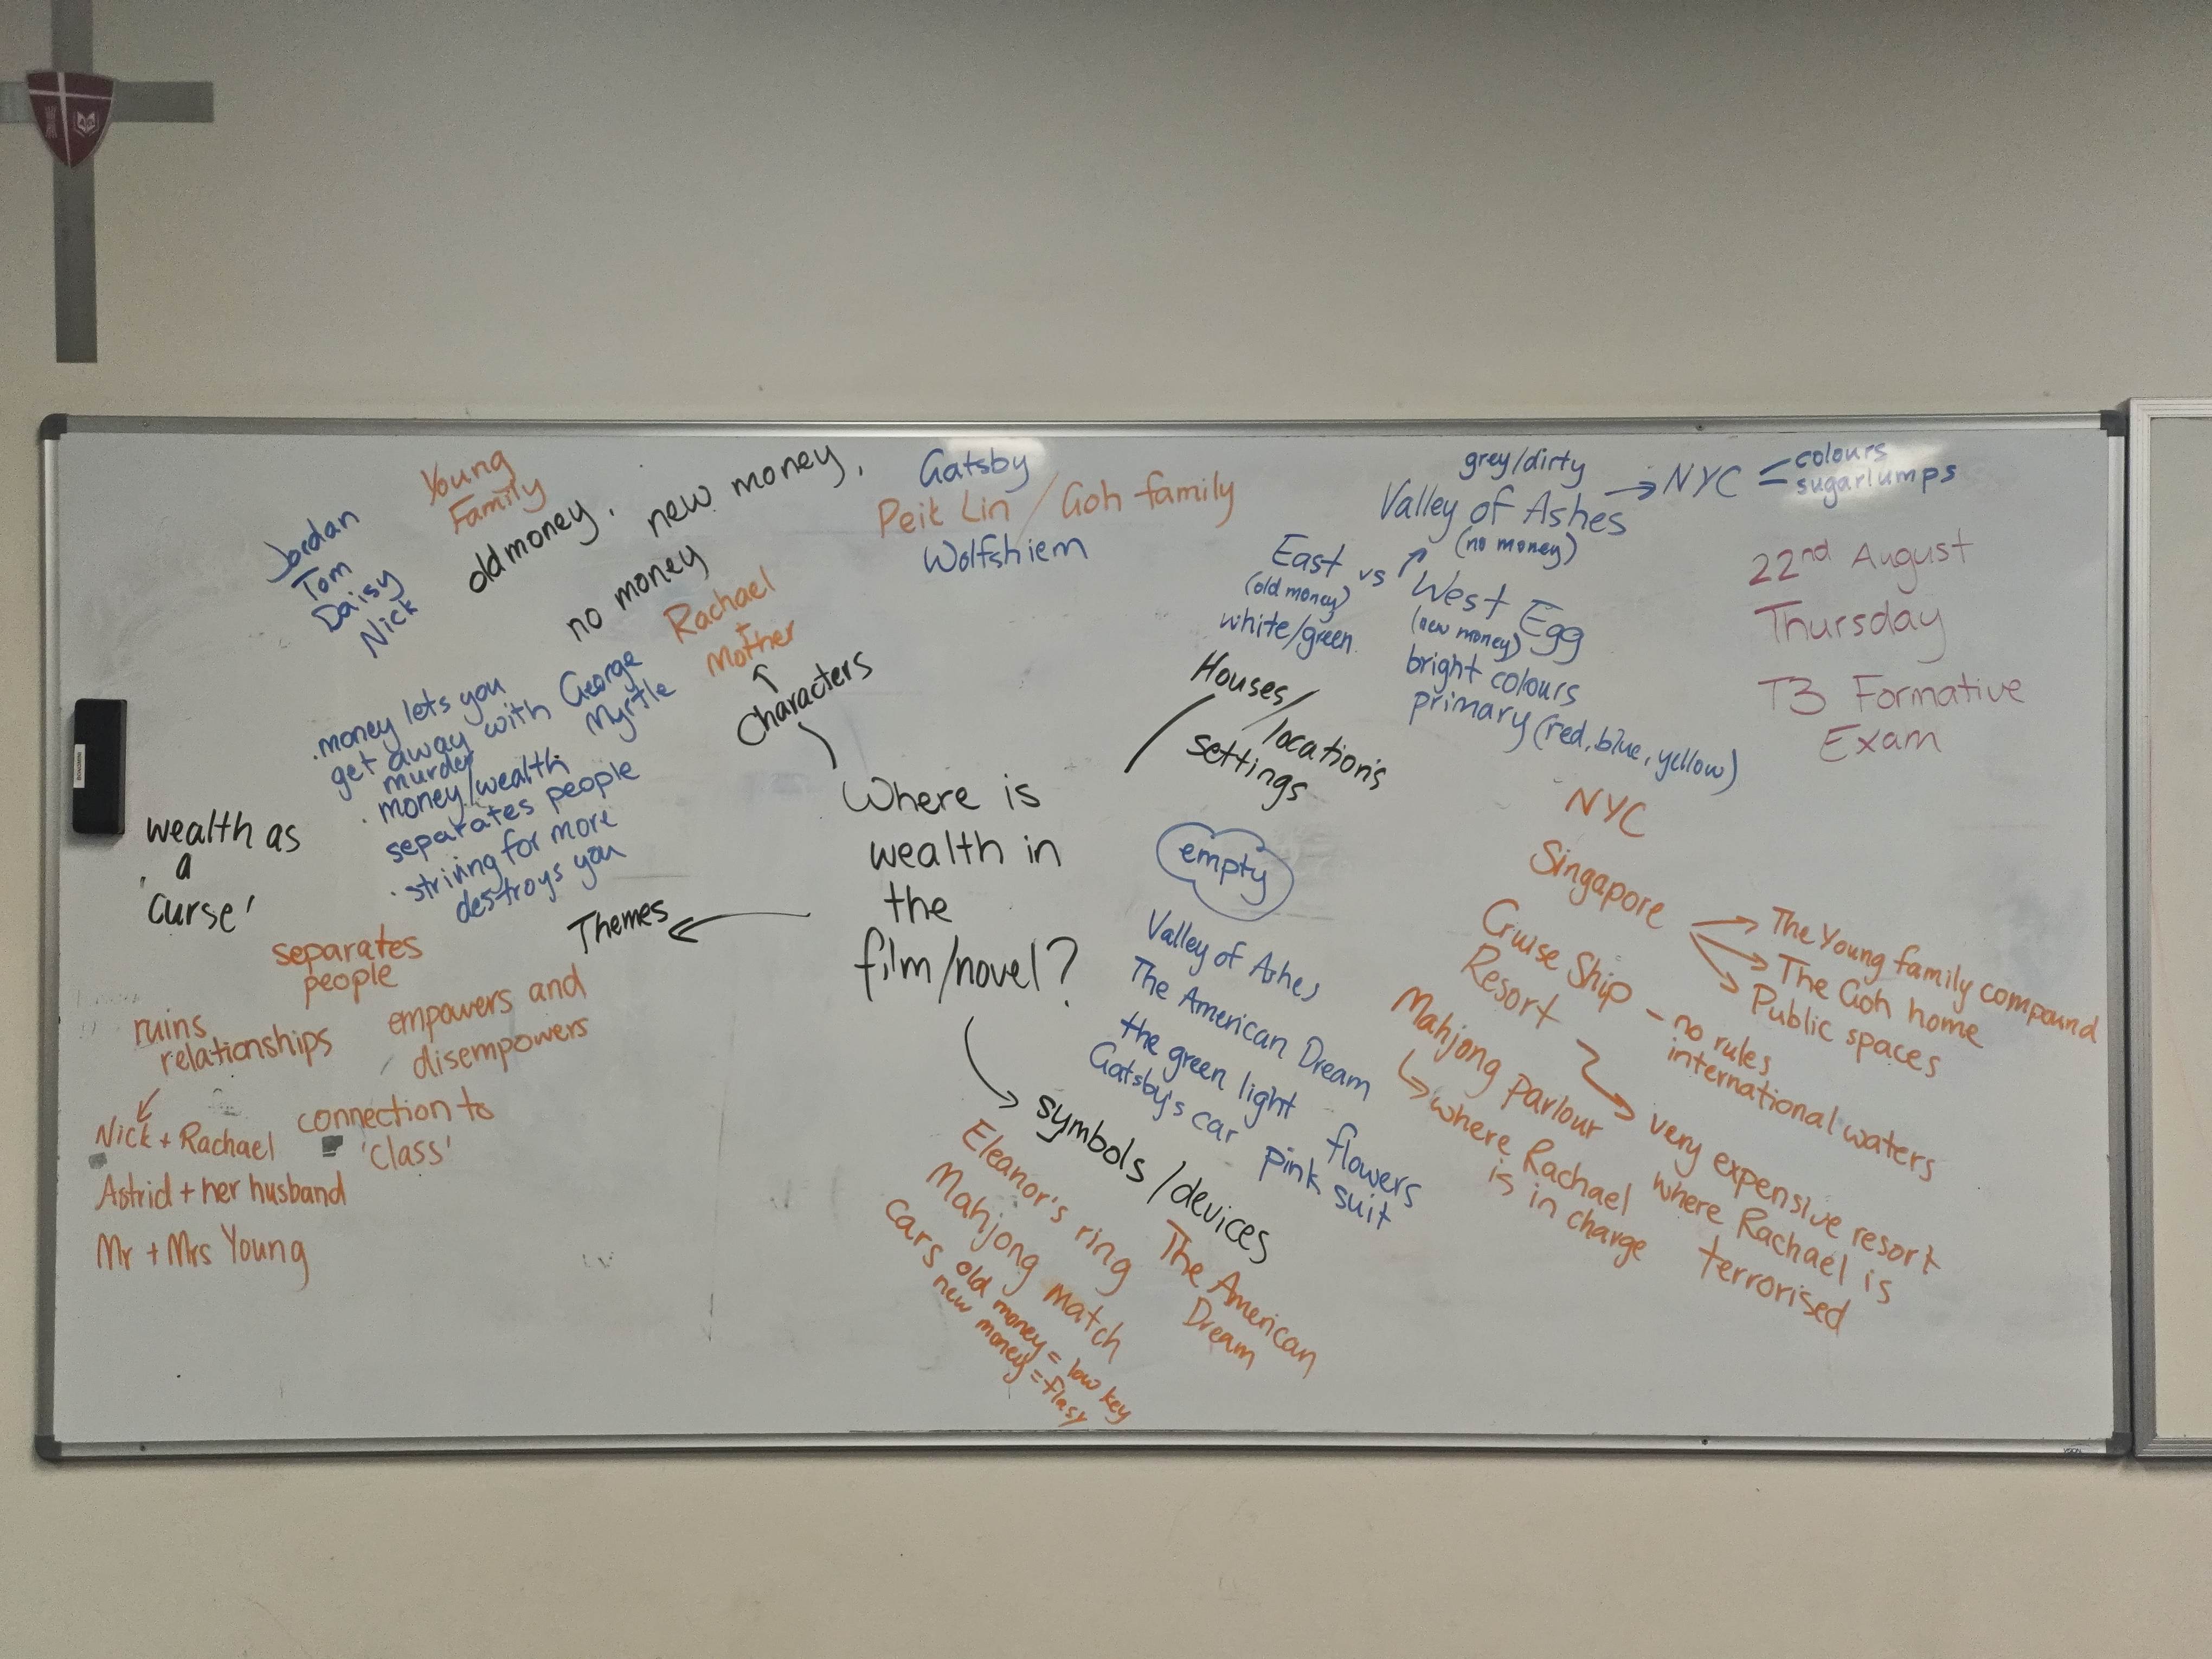 Young
Family
old money, new money,
no money
Jordan
Tom
Daisy
Nick
Gatsby
Peik Lin / Goh family
Wolfshiem
Rachael
+
Mother
George
Myrtle
Characters
grey/dirty
Valley of Ashes → NYC = colours
sugarlumps
(no money)
East vs West Egg
(old money)
(new money)
white/green
bright colours
primary (red, blue, yellow)
Houses/
location's
settings
22nd August
Thursday
T3 Formative
Exam
. money lets you
get away with
murder
. money/wealth
separates people
. striving for more
destroys you
wealth as
a
'curse'
Themes
separates
people
ruins
relationships
empowers and
disempowers
connection to
'class'
Nick + Rachael
Astrid + her husband
Mr + Mrs Young
Where is
wealth in
the
film/novel?
empty
Valley of Ashes
The American Dream
the green light
flowers
Gatsby's car
pink suit
symbols/devices
Eleanor's ring
Mahjong Match
Cars old money = low key
new money = flasy
The American
Dream
NYC
Singapore
→ The Young family compound
→ The Goh home
→ Public spaces
Cruise Ship - no rules
international waters
Resort
very expensive resort
where Rachael is
terrorised
Mahjong Parlour
where Rachael
is in charge